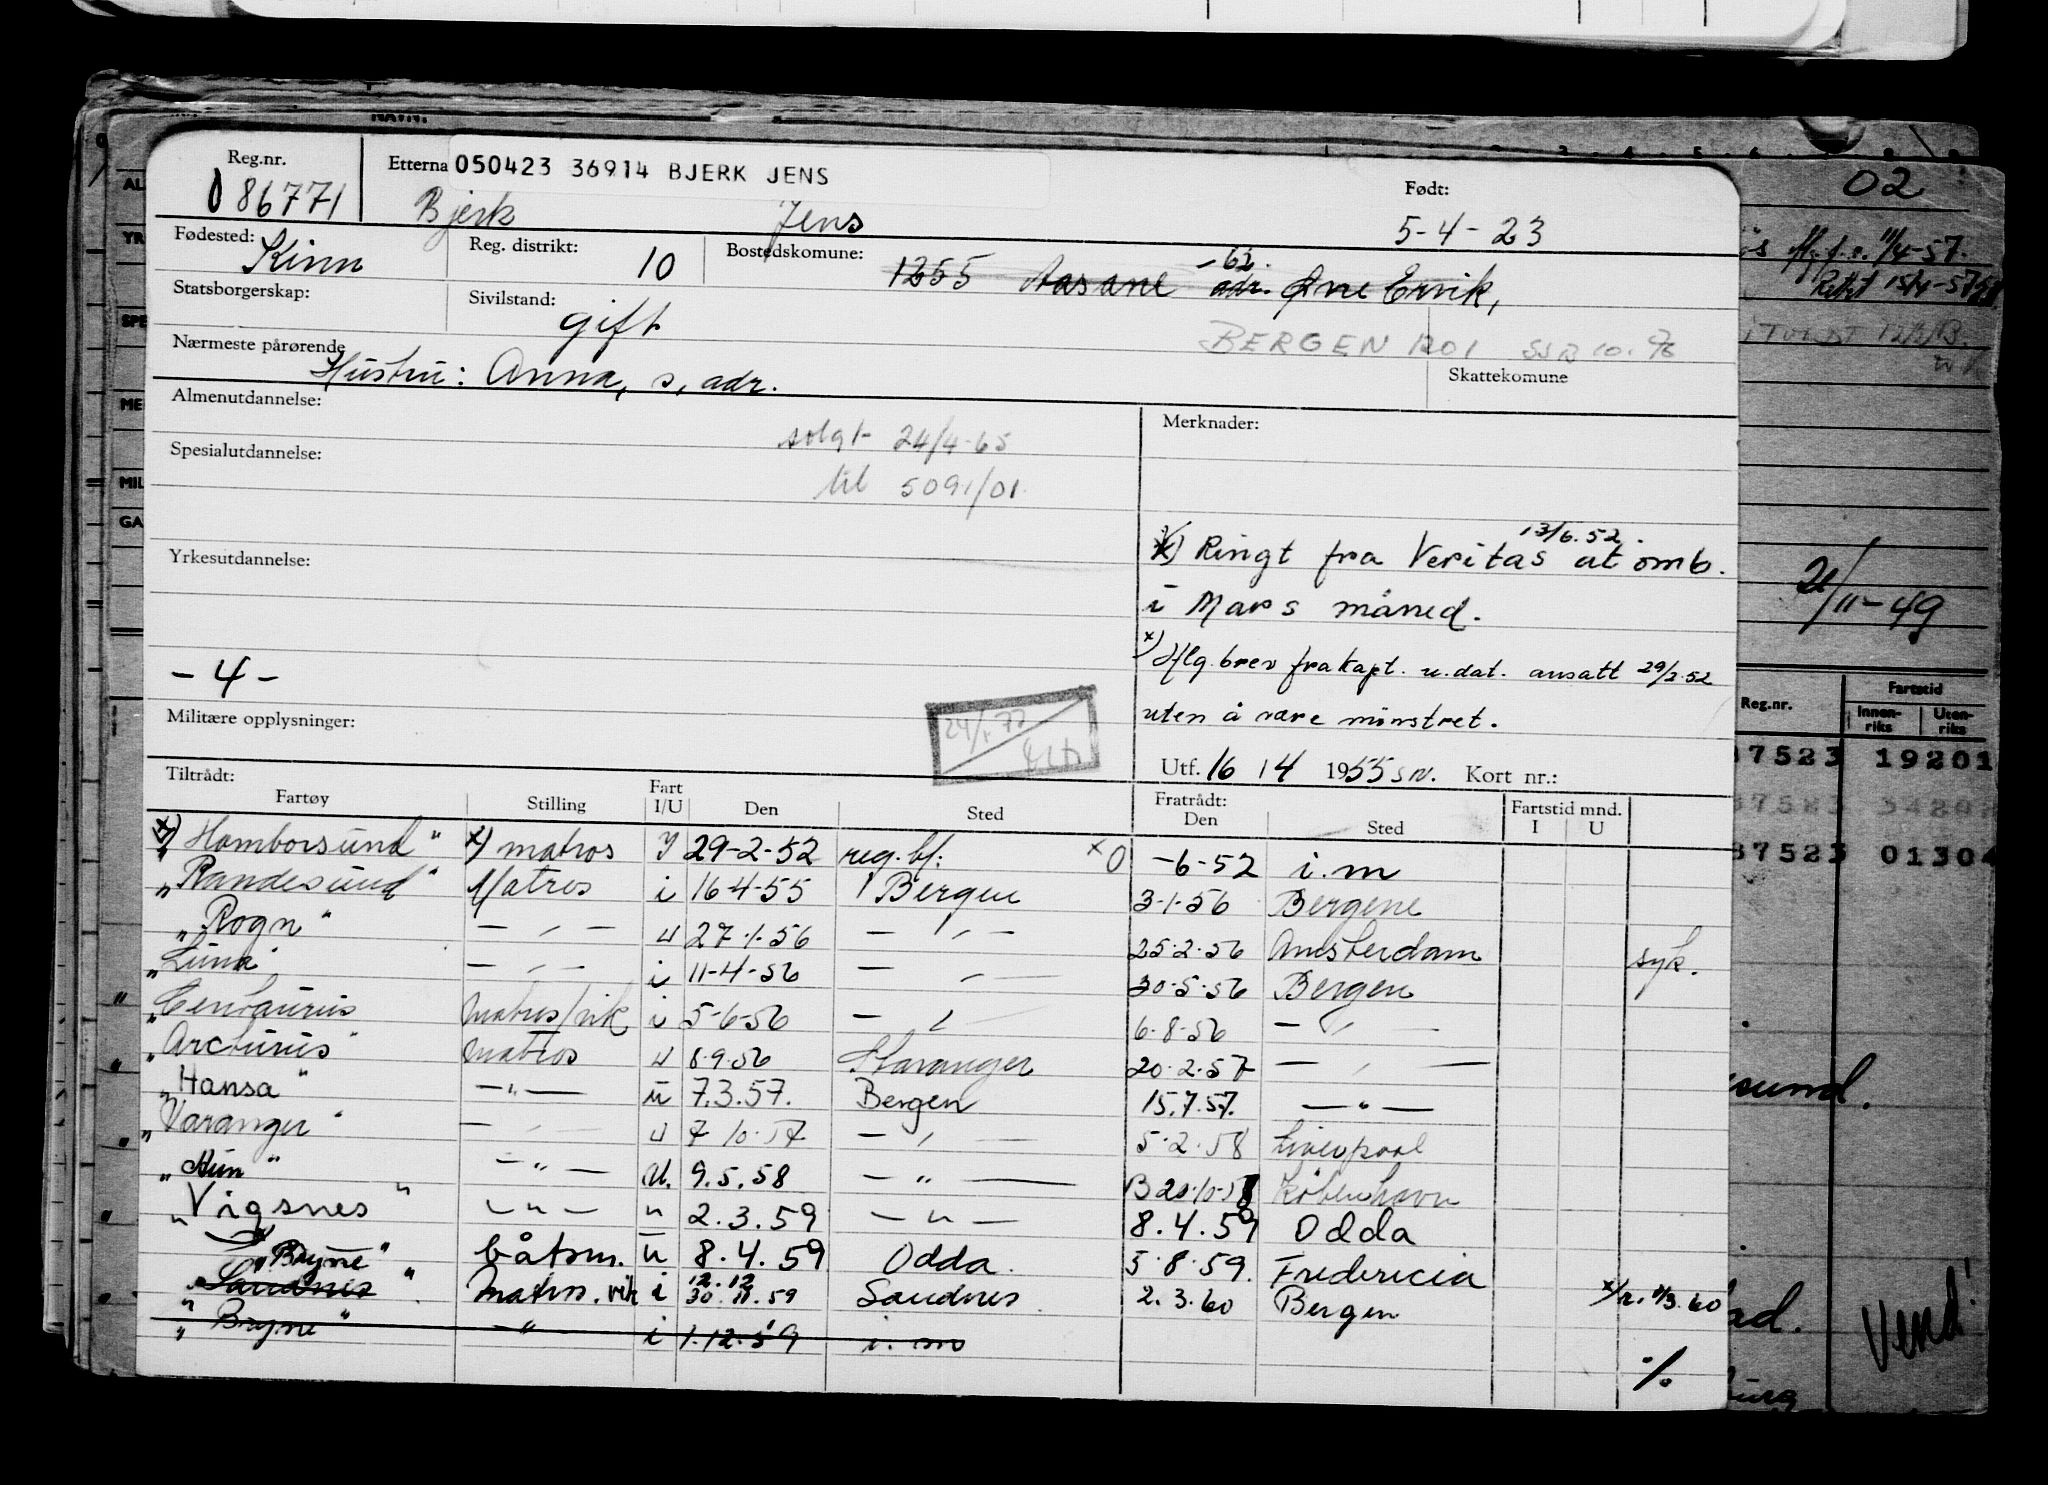 Reg.nr. Etterna 050423 36914 BJERK JENS Født:
086771 Bjerk Jens 5-4-23
Fødested: Kinn Reg. distrikt: 10 Bostedskomune: 1255 Aasane -62. adr. Øvre Ervik,
Statsborgerskap: Sivilstand: gift BERGEN 1201 SSB 10.
Nærmeste pårørende Hustru: Anna, s, adr. Skattekomune
Almenutdannelse: solgt 24/4-65 Merknader:
Spesialutdannelse: til 5091/01
13/6.52.
x) Ringt fra Veritas at omb.
Yrkesutdannelse:
i Mars måned.
x) Iflg. brev fra kapt. u.dat. ansatt 29/2-52
-4-
uten å være mønstret.
Militære opplysninger: 24/1.72
Utf. 16 / 4 1955 sn. Kort nr.:
Tiltrådt: Fratrådt: Fartstid mnd.
Fartøy Stilling Fart I/U Den Sted Den Sted I U
x) "Homborsund" x) matros I 29-2-52 reg.bf: x0 -6-52 i.m
"Randesund" Matros i 16-4-55 Bergen 3-1-56 Bergene
"Rogn" — " — u 27.1.56 — " — 25-2-56 Amsterdam syk.
"Luna" — " — i 11-4-56 — " — 30-5-56 Bergen
"Centaurus matros/vik i 5-6-56 — " — 6-8-56 — " —
"Arcturus" matros u 8.9.56 Stavanger 20.2.57 — " —
"Hansa" — " — u 7.3.57. Bergen 15.7.57. — " —
"Varanger" — " — u 7 10.57 — " — 5.2.58 Liverpool
" — " — u. 9.5.58 — " — B 20.10.58 København
"Vigsnes" — " — u 2.3.59 — " — 8.4.59 Odda
"Bryne" båtsm. u 8.4.59 Odda. 5.8.59. Fredericia
"Sandnes" matros. vik i 12.12 30.11.59 Sandnes 2.3.60 Bergen
"Bryne" — " — i 1.12.59 i. m
./.
02
11/4-57.
Rettet 15/4-57
21/11-49
Reg.nr. Fartstid
Innen-riks Uten-riks
87523 19201
87523
87523 01304
sund.
Vend!